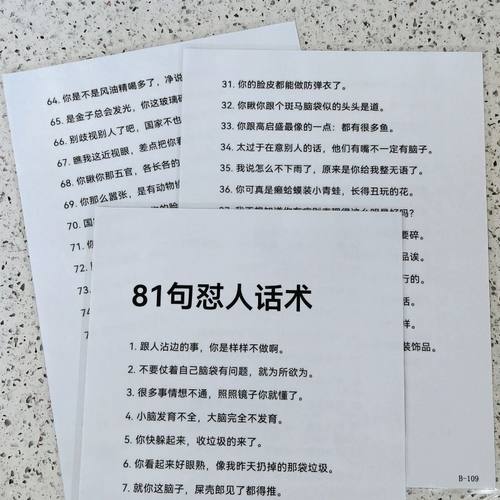 64. 你是不是风油精喝多了，净说
65. 是金子总会发光，你这玻璃
66. 别歧视别人了吧，国家不也
67. 瞧我这近视眼，差点把你看
68. 你瞅你那五官，各长各的
69. 你那么嚣张，是有动物
70. 国
71. 你
72.
73.
74.
75.
76.
31. 你的脸皮都能做防弹衣了。
32. 你瞅你跟个斑马脑袋似的头头是道。
33. 你跟高启盛最像的一点：都有很多鱼。
34. 太过于在意别人的话，他们有嘴不一定有脑子。
35. 我说怎么不下雨了，原来是你给我整无语了。
36. 你可真是癞蛤蟆装小青蛙，长得丑玩的花。
要碎。
品诶。
行的。
话。
样。
装饰品。
B-109
81句怼人话术
1. 跟人沾边的事，你是样样不做啊。
2. 不要仗着自己脑袋有问题，就为所欲为。
3. 很多事情想不通，照照镜子你就懂了。
4. 小脑发育不全，大脑完全不发育。
5. 你快躲起来，收垃圾的来了。
6. 你看起来好眼熟，像我昨天扔掉的那袋垃圾。
7. 就你这脑子，屎壳郎见了都得推。